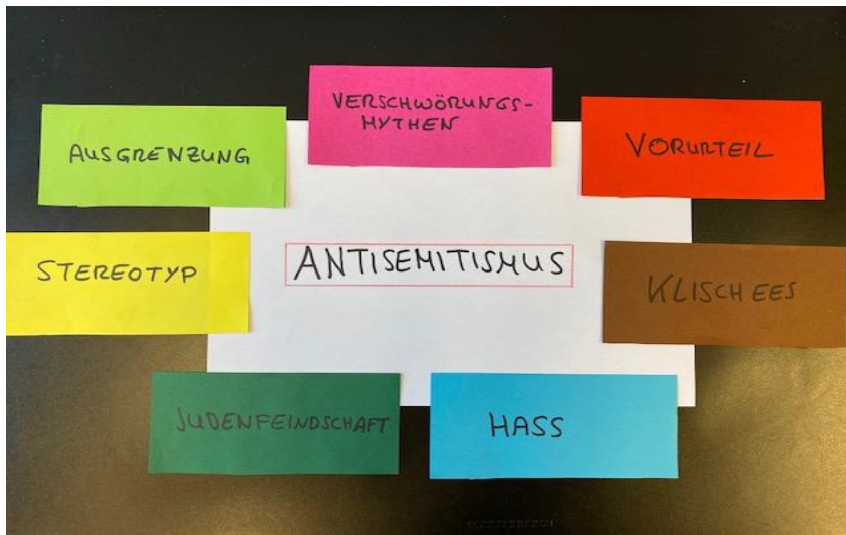 VERSCHWÖRUNGS-
MYTHEN
AUSGRENZUNG
VORURTEIL
STEREOTYP
ANTISEMITISMUS
KLISCHEES
JUDENFEINDSCHAFT
HASS